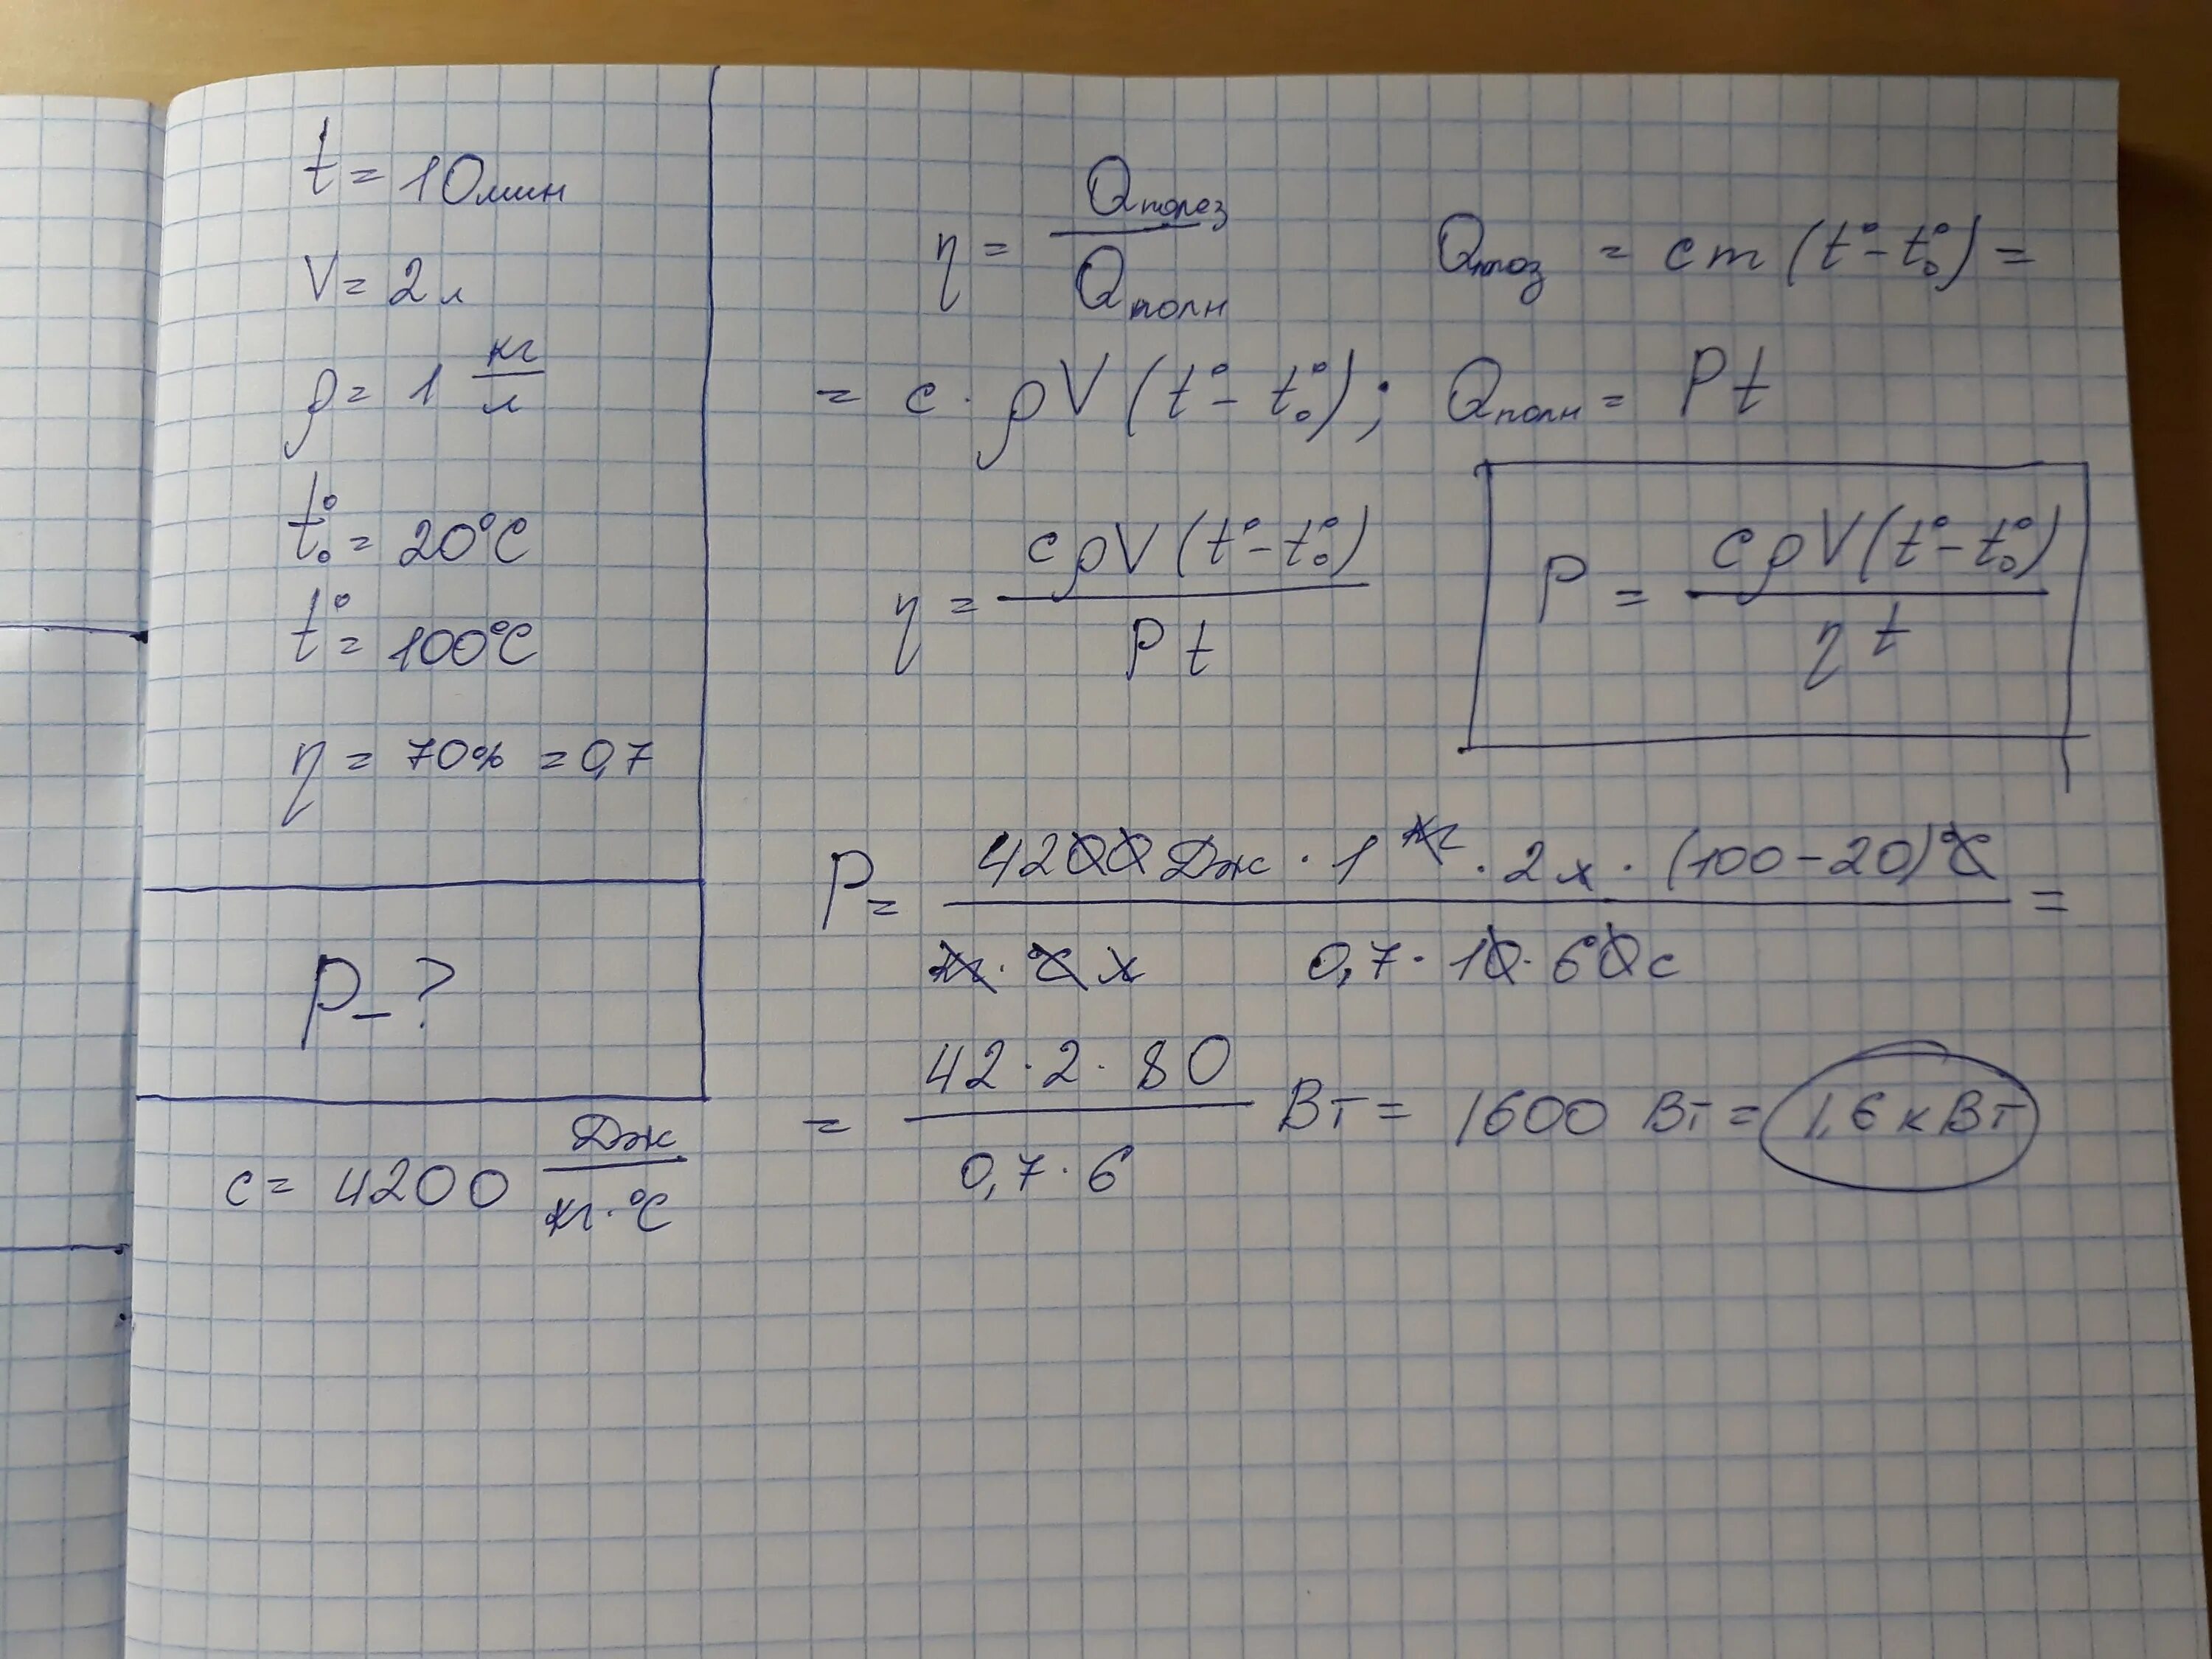 t = 10мин
V = 2 л
ρ = 1 кг/л
t°₀ = 20°C
t° = 100°C
η = 70% = 0,7
P - ?
c = 4200 Дж/кг·°C
η = Qполез/Qполн
Qпол = cm(t° - t°₀) =
= c · ρV(t° - t°₀); Qполн = Pt
η = cρV(t° - t°₀)/Pt
P = cρV(t° - t°₀)/ηt
P = 4200 Дж · 1 кг · 2 л · (100 - 20)°C / кг · °C л 0,7 · 10 · 60 с =
= 42 · 2 · 80/0,7 · 6 Вт = 1600 Вт = 1,6 кВт